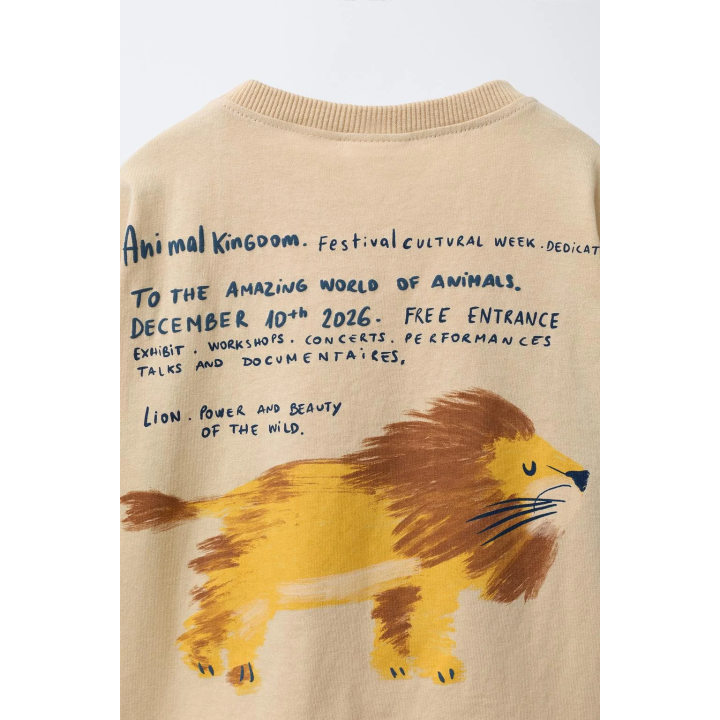 Animal Kingdom. Festival CULTURAL WEEK. DEDICAT
TO THE AMAZING WORLD OF ANIMALS.
DECEMBER 10th 2026. FREE ENTRANCE
EXHIBIT. WORKSHOPS. CONCERTS. PERFORMANCES
TALKS AND DOCUMENTAIRES.
LION. POWER AND BEAUTY
OF THE WILD.